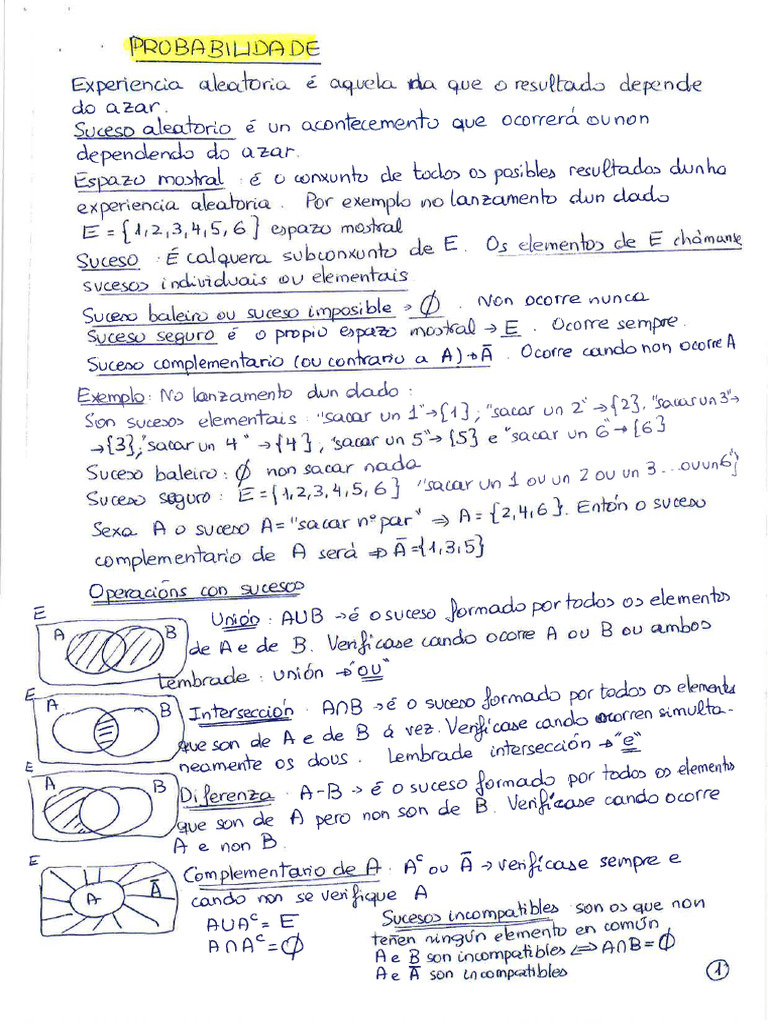 PROBABILIDADE
Experiencia aleatoria é aquela na que o resultado depende
do azar.
Suceso aleatorio é un acontecemento que ocorrerá ou non
dependendo do azar.
Espazo mostral: é o conxunto de todos os posibles resultados dunha
experiencia aleatoria. Por exemplo no lanzamento dun dado
E={1,2,3,4,5,6} espazo mostral
Suceso: É calquera subconxunto de E. Os elementos de E chámanse
sucesos individuais ou elementais
Suceso baleiro ou suceso imposible → Ø. Non ocorre nunca
Suceso seguro é o propio espazo mostral → E. Ocorre sempre.
Suceso complementario (ou contrario a A) → Ā. Ocorre cando non ocorre A
Exemplo: No lanzamento dun dado:
Son sucesos elementais: "sacar un 1"→{1}; "sacar un 2"→{2}, "sacar un 3"→
→{3}; "sacar un 4"→{4}, "sacar un 5"→{5} e "sacar un 6"→{6}
Suceso baleiro: Ø non sacar nada
Suceso seguro: E={1,2,3,4,5,6} "sacar un 1 ou un 2 ou un 3...ou un 6"
Sexa A o suceso A="sacar nº par" ⇒ A={2,4,6}. Entón o suceso
complementario de A será ⇒ Ā={1,3,5}
Operacións con sucesos
E
A B
Unión: AUB → é o suceso formado por todos os elementos
de A e de B. Verifícase cando ocorre A ou B ou ambos
Lembrade: unión → "ou"
E
A B
Intersección: A∩B → é o suceso formado por todos os elementos
que son de A e de B á vez. Verifícase cando ocorren simulta-
neamente os dous. Lembrade intersección → "e"
E
A B
Diferenza: A-B → é o suceso formado por todos os elementos
que son de A pero non son de B. Verifícase cando ocorre
A e non B.
E
A Ā
Complementario de A: Aᶜ ou Ā → verifícase sempre e
cando non se verifique A
AUAᶜ=E
A∩Aᶜ=Ø
Sucesos incompatibles son os que non
teñen ningún elemento en común
A e B son incompatibles ⇔ A∩B=Ø
A e Ā son incompatibles
1